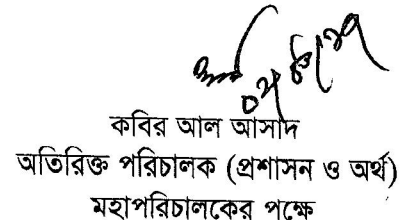 কবির আল আসাদ
অতিরিক্ত পরিচালক (প্রশাসন ও অর্থ)
মহাপরিচালকের পক্ষে